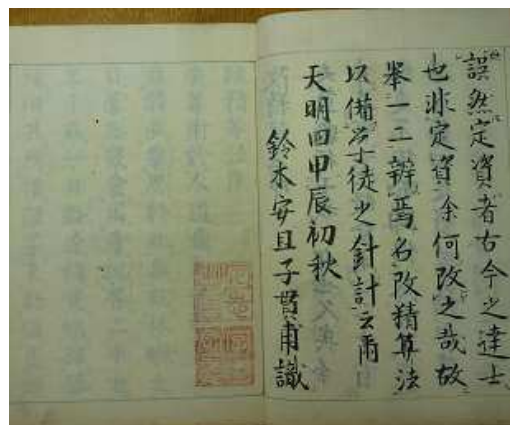 誤然定資者古今之達士
也非定資余何改之哉故
挙一二辨焉名改精算法
以備学徒之針計云爾
天明四甲辰初秋
鈴木安旦子貫甫識